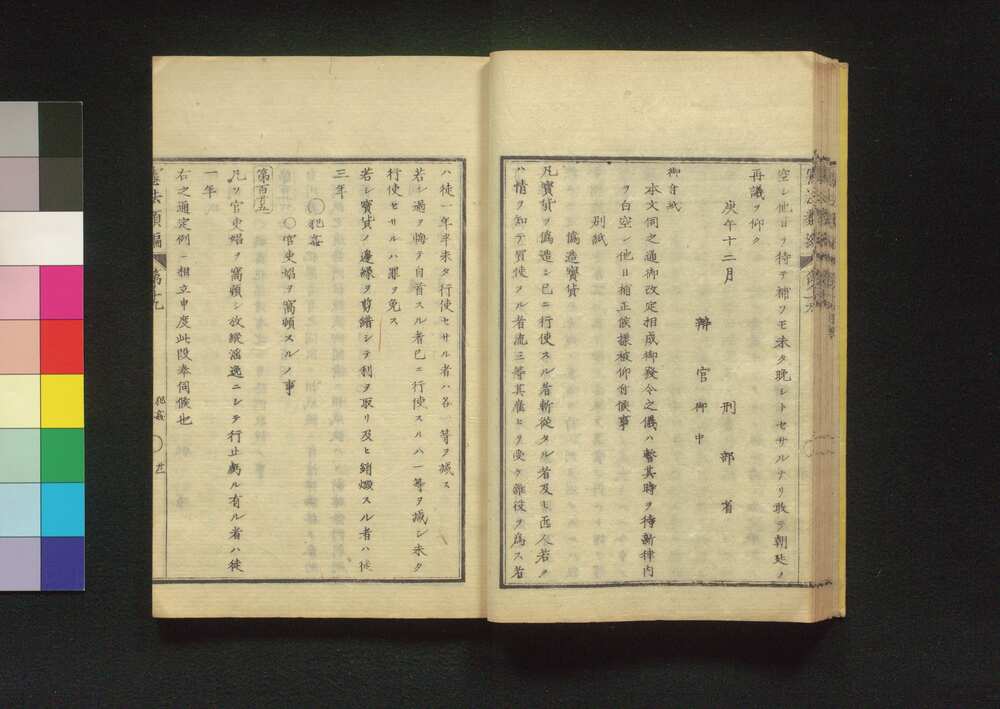 空シ他日ヲ待テ補フモ未タ晩シトセサルナリ敢テ朝廷ノ
再議ヲ仰ク
庚午十二月
刑部省
辨官御中
御付紙
本文伺之通御改定相成御發令之儀ハ暫其時ヲ待新律内
ヲ白空シ他日補正候樣被仰付候事
別紙
偽造寳貨
凡寳貨ヲ偽造シ已ニ行使スル者斬從タル者及ヒ匠人若ク
ハ情ヲ知テ買使スル者流三等其雇ヒヲ受ケ雜役ヲ爲ス者
ハ徒一年半未タ行使セサル者ハ各一等ヲ減ス
若シ過ヲ悔テ自首スル者已ニ行使スルハ一等ヲ減シ未タ
行使セサルハ罪ヲ免ス
若シ寳貨ノ邊緣ヲ剪錯シテ利ヲ取リ及ヒ銷燬スル者ハ徒
三年
〇犯姦
第百廿五
〇官吏娼ヲ窩頓スルノ事
凡ソ官吏娼ヲ窩頓シ放縱淫逸ニシテ行止虧ル有ル者ハ徒
一年
右之通定例ニ相立申度此段奉伺候也
憲法類編 第十九 犯姦 〇 廿一